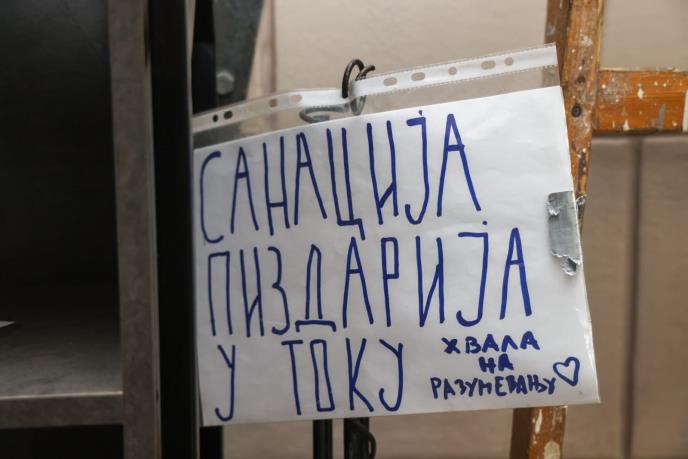 САНАЦИЈА
ПИЗДАРИЈА
У ТОКУ
ХВАЛА
НА
РАЗУМЕВАЊУ